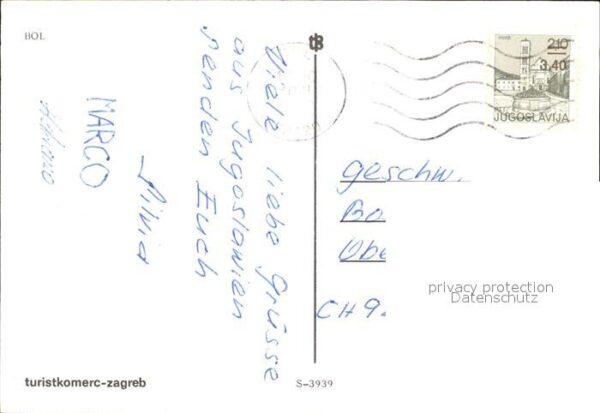 BOL
Viele liebe Grüsse
aus Jugoslawien
senden Euch
Silvia
MARCO
2.10
3,40
JUGOSLAVIJA
geschw.
Bo
Obe
CH 9.
privacy protection
Datenschutz
turistkomerc-zagreb
S-3939